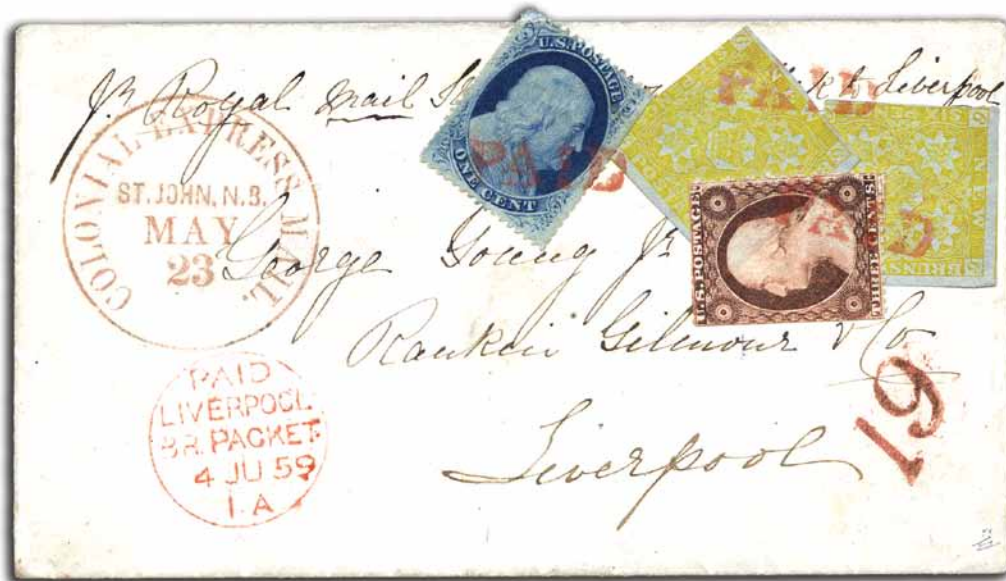 pr Royal Mail to Liverpool
U.S. POSTAGE
ONE CENT
PAID
PAID
PAID
U.S. POSTAGE
THREE CENTS
SIX
NEW
BRUNS
COLONIAL EXPRESS MAIL.
ST. JOHN, N.B.
MAY
23
George Young Jr
Rankin Gilmour & Co
Liverpool
19
PAID
LIVERPOOL
BR. PACKET
4 JU 59
1.A